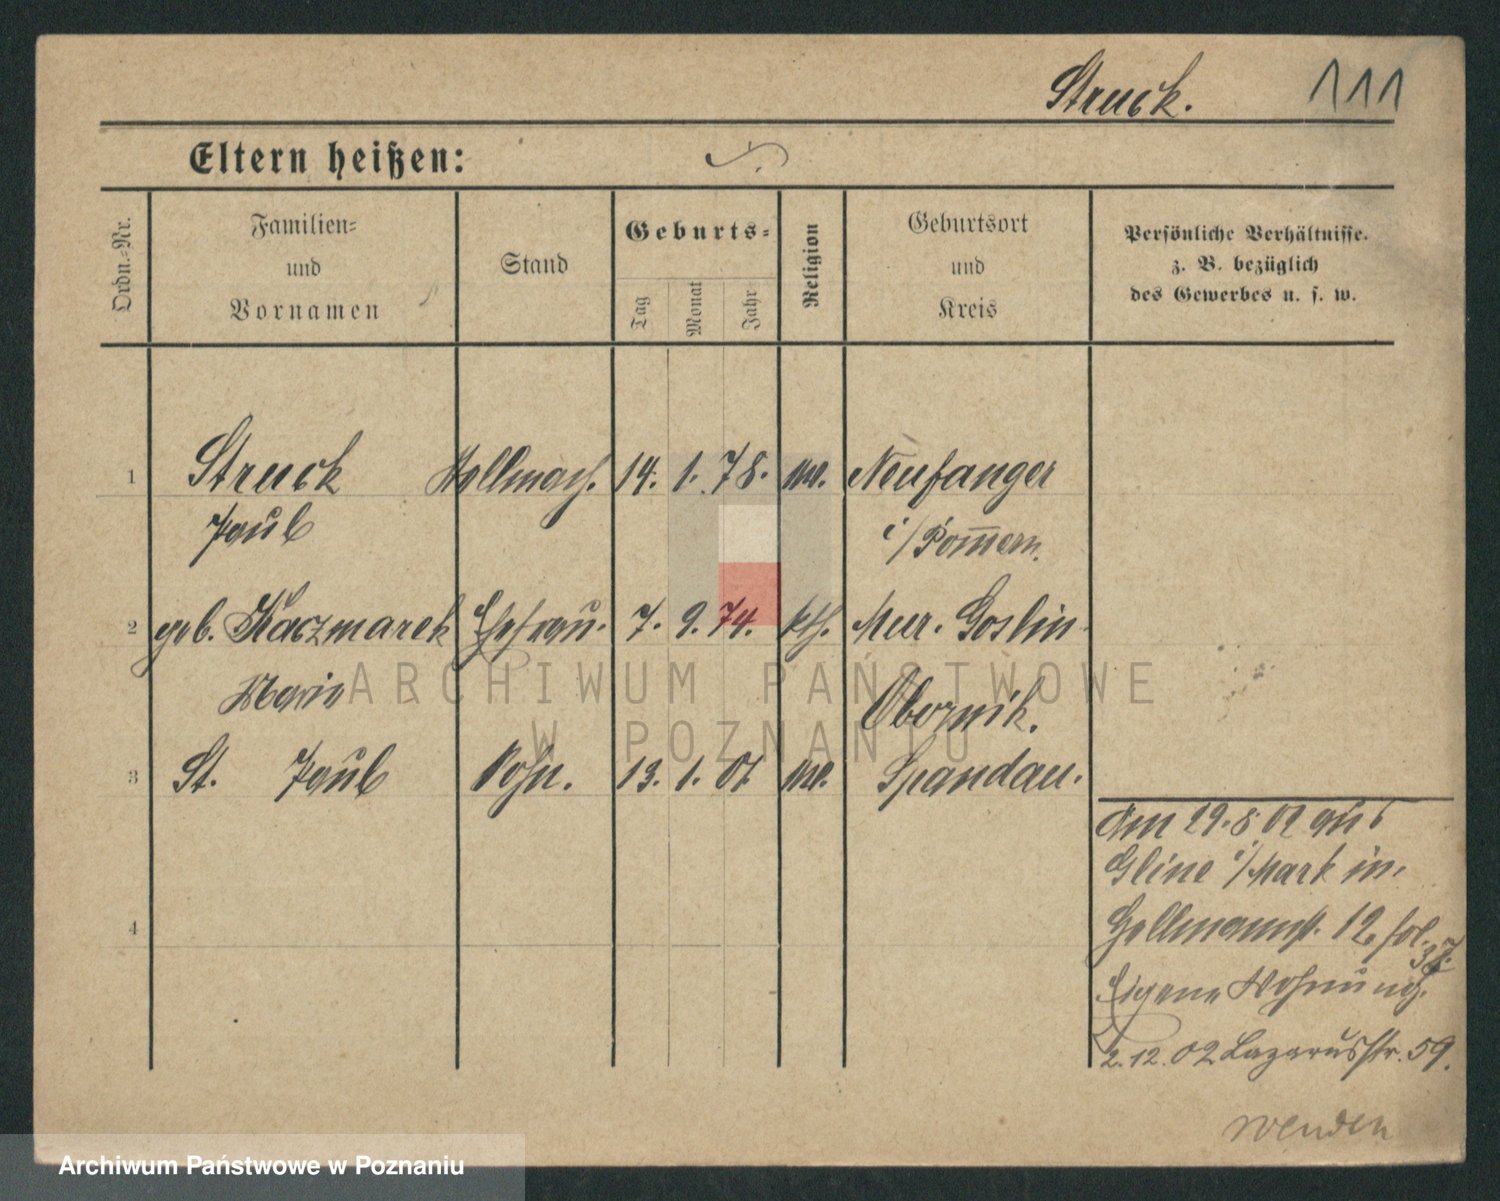 Struck. 111
Eltern heißen:
Ordn.-Nr.
Familien-
und
Vornamen
Stand
Geburts-
Tag
Monat
Jahr
Religion
Geburtsort
und
Kreis
Persönliche Verhältnisse.
z. B. bezüglich
des Gewerbes u. s. w.
1 Struck 14. 1. 78. Neufanger
Paul i/Pommern.
2 geb. Kaczmarek Ehefrau. 7. 9. 74. kth. Mur. Goslin
Marie Obornik.
3 St. Paul Sohn. 13. 1. 01. Spandau.
4
Am 29.8.02 aus
Gline i/Mark in.
12.
37.
Eigene Wohnung.
2.12.02 Lazarusstr. 59.
wenden
ARCHIWUM PAŃSTWOWE
W POZNANIU
Archiwum Państwowe w Poznaniu